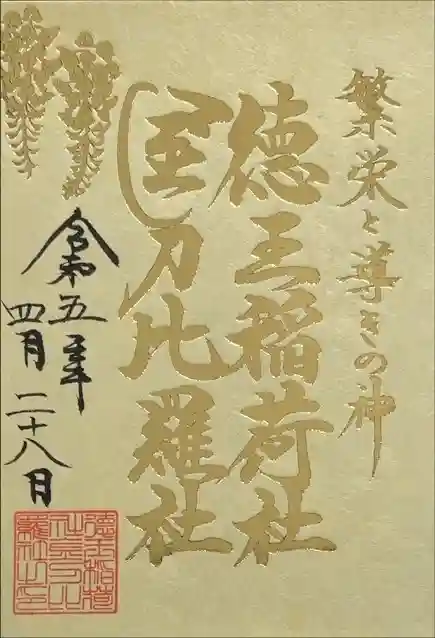 繁栄と導きの神
徳王稲荷社
金刀比羅社
令和五年
四月二十八日